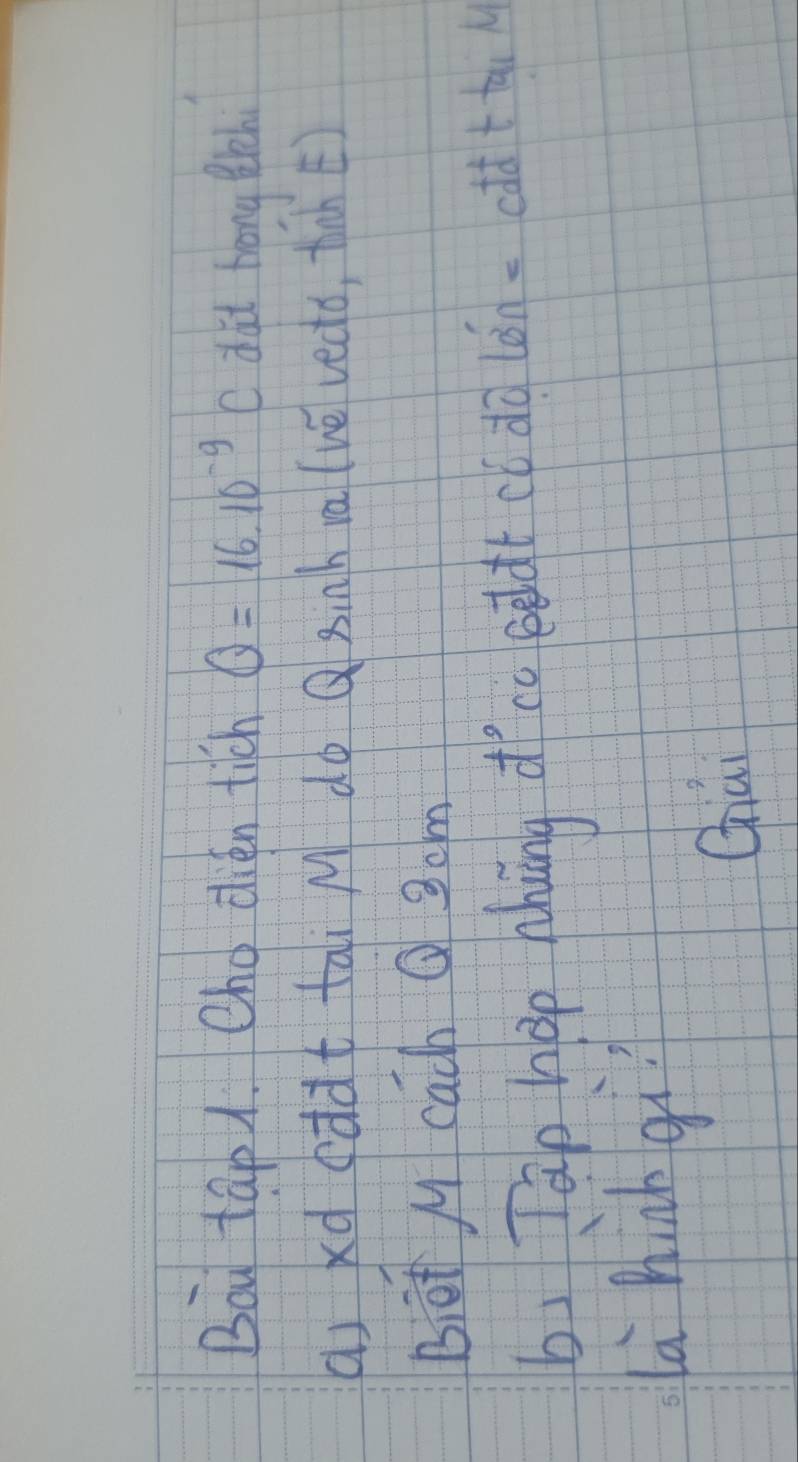 Bài tập 1. Cho điện tích Q = 16.10⁻⁹ C đặt trong kkhí
a) xd cđđt tại M do Q sinh ra (vẽ vectơ, tính E)
Biết M cách Q 3cm
b) Tập hợp những đ' có cđđt có độ lớn = cđđt tại M
là hình gì?
Giải
5